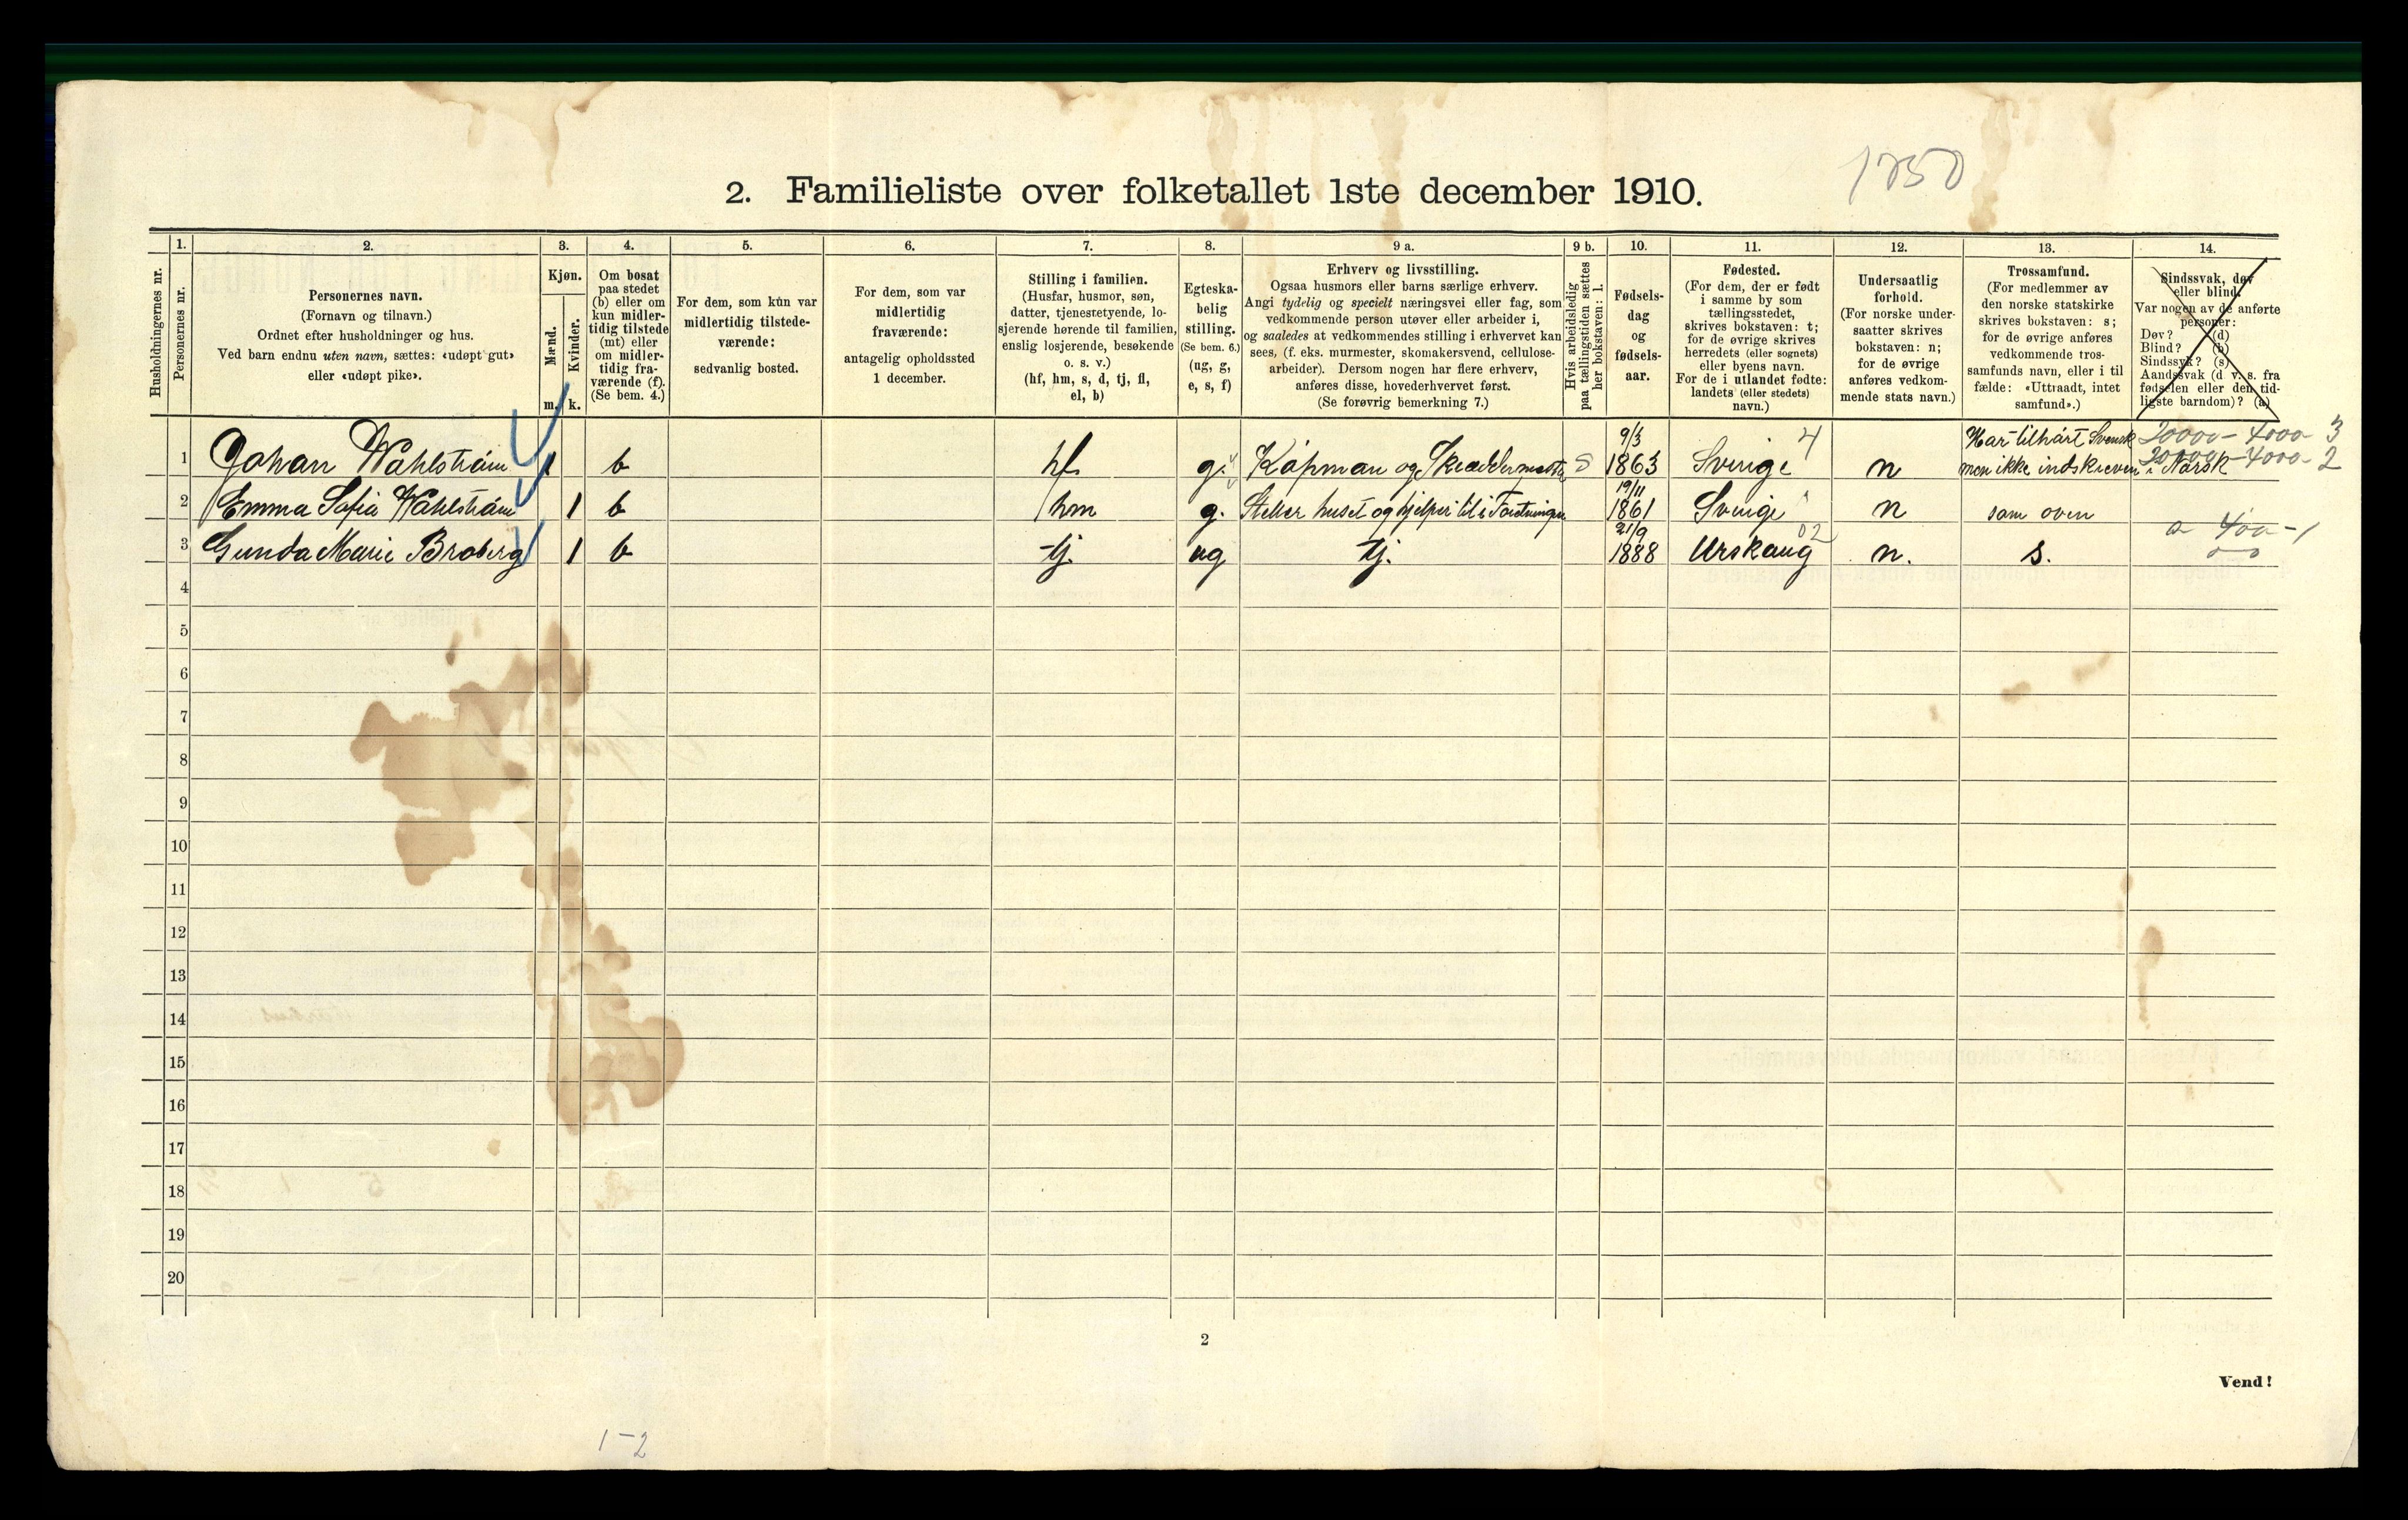 1250
2. Familieliste over folketallet 1ste december 1910.
Husholdningernes nr.
1. Personernes nr.
2.
Personernes navn.
(Fornavn og tilnavn.)
Ordnet efter husholdninger og hus.
Ved barn endnu uten navn, sættes: «udøpt gut»
eller «udøpt pike».
3.
Kjøn.
Mænd.
Kvinder.
m. k.
4.
Om bosat
paa stedet
(b) eller om
kun midler-
tidig tilstede
(mt) eller
om midler-
tidig fra-
værende (f).
(Se bem. 4.)
5.
For dem, som kun var
midlertidig tilstede-
værende:
sedvanlig bosted.
6.
For dem, som var
midlertidig
fraværende:
antagelig opholdssted
1 december.
7.
Stilling i familien.
(Husfar, husmor, søn,
datter, tjenestetyende, lo-
sjerende hørende til familien,
enslig losjerende, besøkende
o. s. v.)
(hf, hm, s, d, tj, fl,
el, b)
8.
Egteska-
belig
stilling.
(Se bem. 6.)
(ug, g,
e, s, f)
9 a.
Erhverv og livsstilling.
Ogsaa husmors eller barns særlige erhverv.
Angi tydelig og specielt næringsvei eller fag, som
vedkommende person utøver eller arbeider i,
og saaledes at vedkommendes stilling i erhvervet kan
sees, (f. eks. murmester, skomakersvend, cellulose-
arbeider). Dersom nogen har flere erhverv,
anføres disse, hovederhvervet først.
(Se forøvrig bemerkning 7.)
9 b.
Hvis arbeidsledig
paa tællingstiden sættes
her bokstaven: l.
10.
Fødsels-
dag
og
fødsels-
aar.
11.
Fødested.
(For dem, der er født
i samme by som
tællingsstedet,
skrives bokstaven: t;
for de øvrige skrives
herredets (eller sognets)
eller byens navn.
For de i utlandet fødte:
landets (eller stedets)
navn.)
12.
Undersaatlig
forhold.
(For norske under-
saatter skrives
bokstaven: n;
for de øvrige
anføres vedkom-
mende stats navn.)
13.
Trossamfund.
(For medlemmer av
den norske statskirke
skrives bokstaven: s;
for de øvrige anføres
vedkommende tros-
samfunds navn, eller i til
fælde: «Uttraadt, intet
samfund».)
14.
Sindssvak, døv
eller blind.
Var nogen av de anførte
personer:
Døv? (d)
Blind? (b)
Sindssyk? (s)
Aandssvak (d. v. s. fra
fødselen eller den tid-
ligste barndom)? (a)
1 Johan Wahlström 1 b hf g. Köpman og Skræddermester S 9/3 1863 Sverige 4 n Har tilhört Svensk men ikke indskreven i Norsk 20000 - 4000 - 3
20000 - 4000 - 2
2 Emma Sofia Wahlström 1 b hm g. Steller huset og hjelper til i Forretningen 19/11 1861 Sverige n som oven
3 Gunda Marie Broberg 1 b tj. ug tj. 21/9 1888 Urskaug 02 n. s. 0 400 - 1
4
5
6
7
8
9
10
11
12
13
14
15
16
17
18
19
20
2
Vend!
1-2